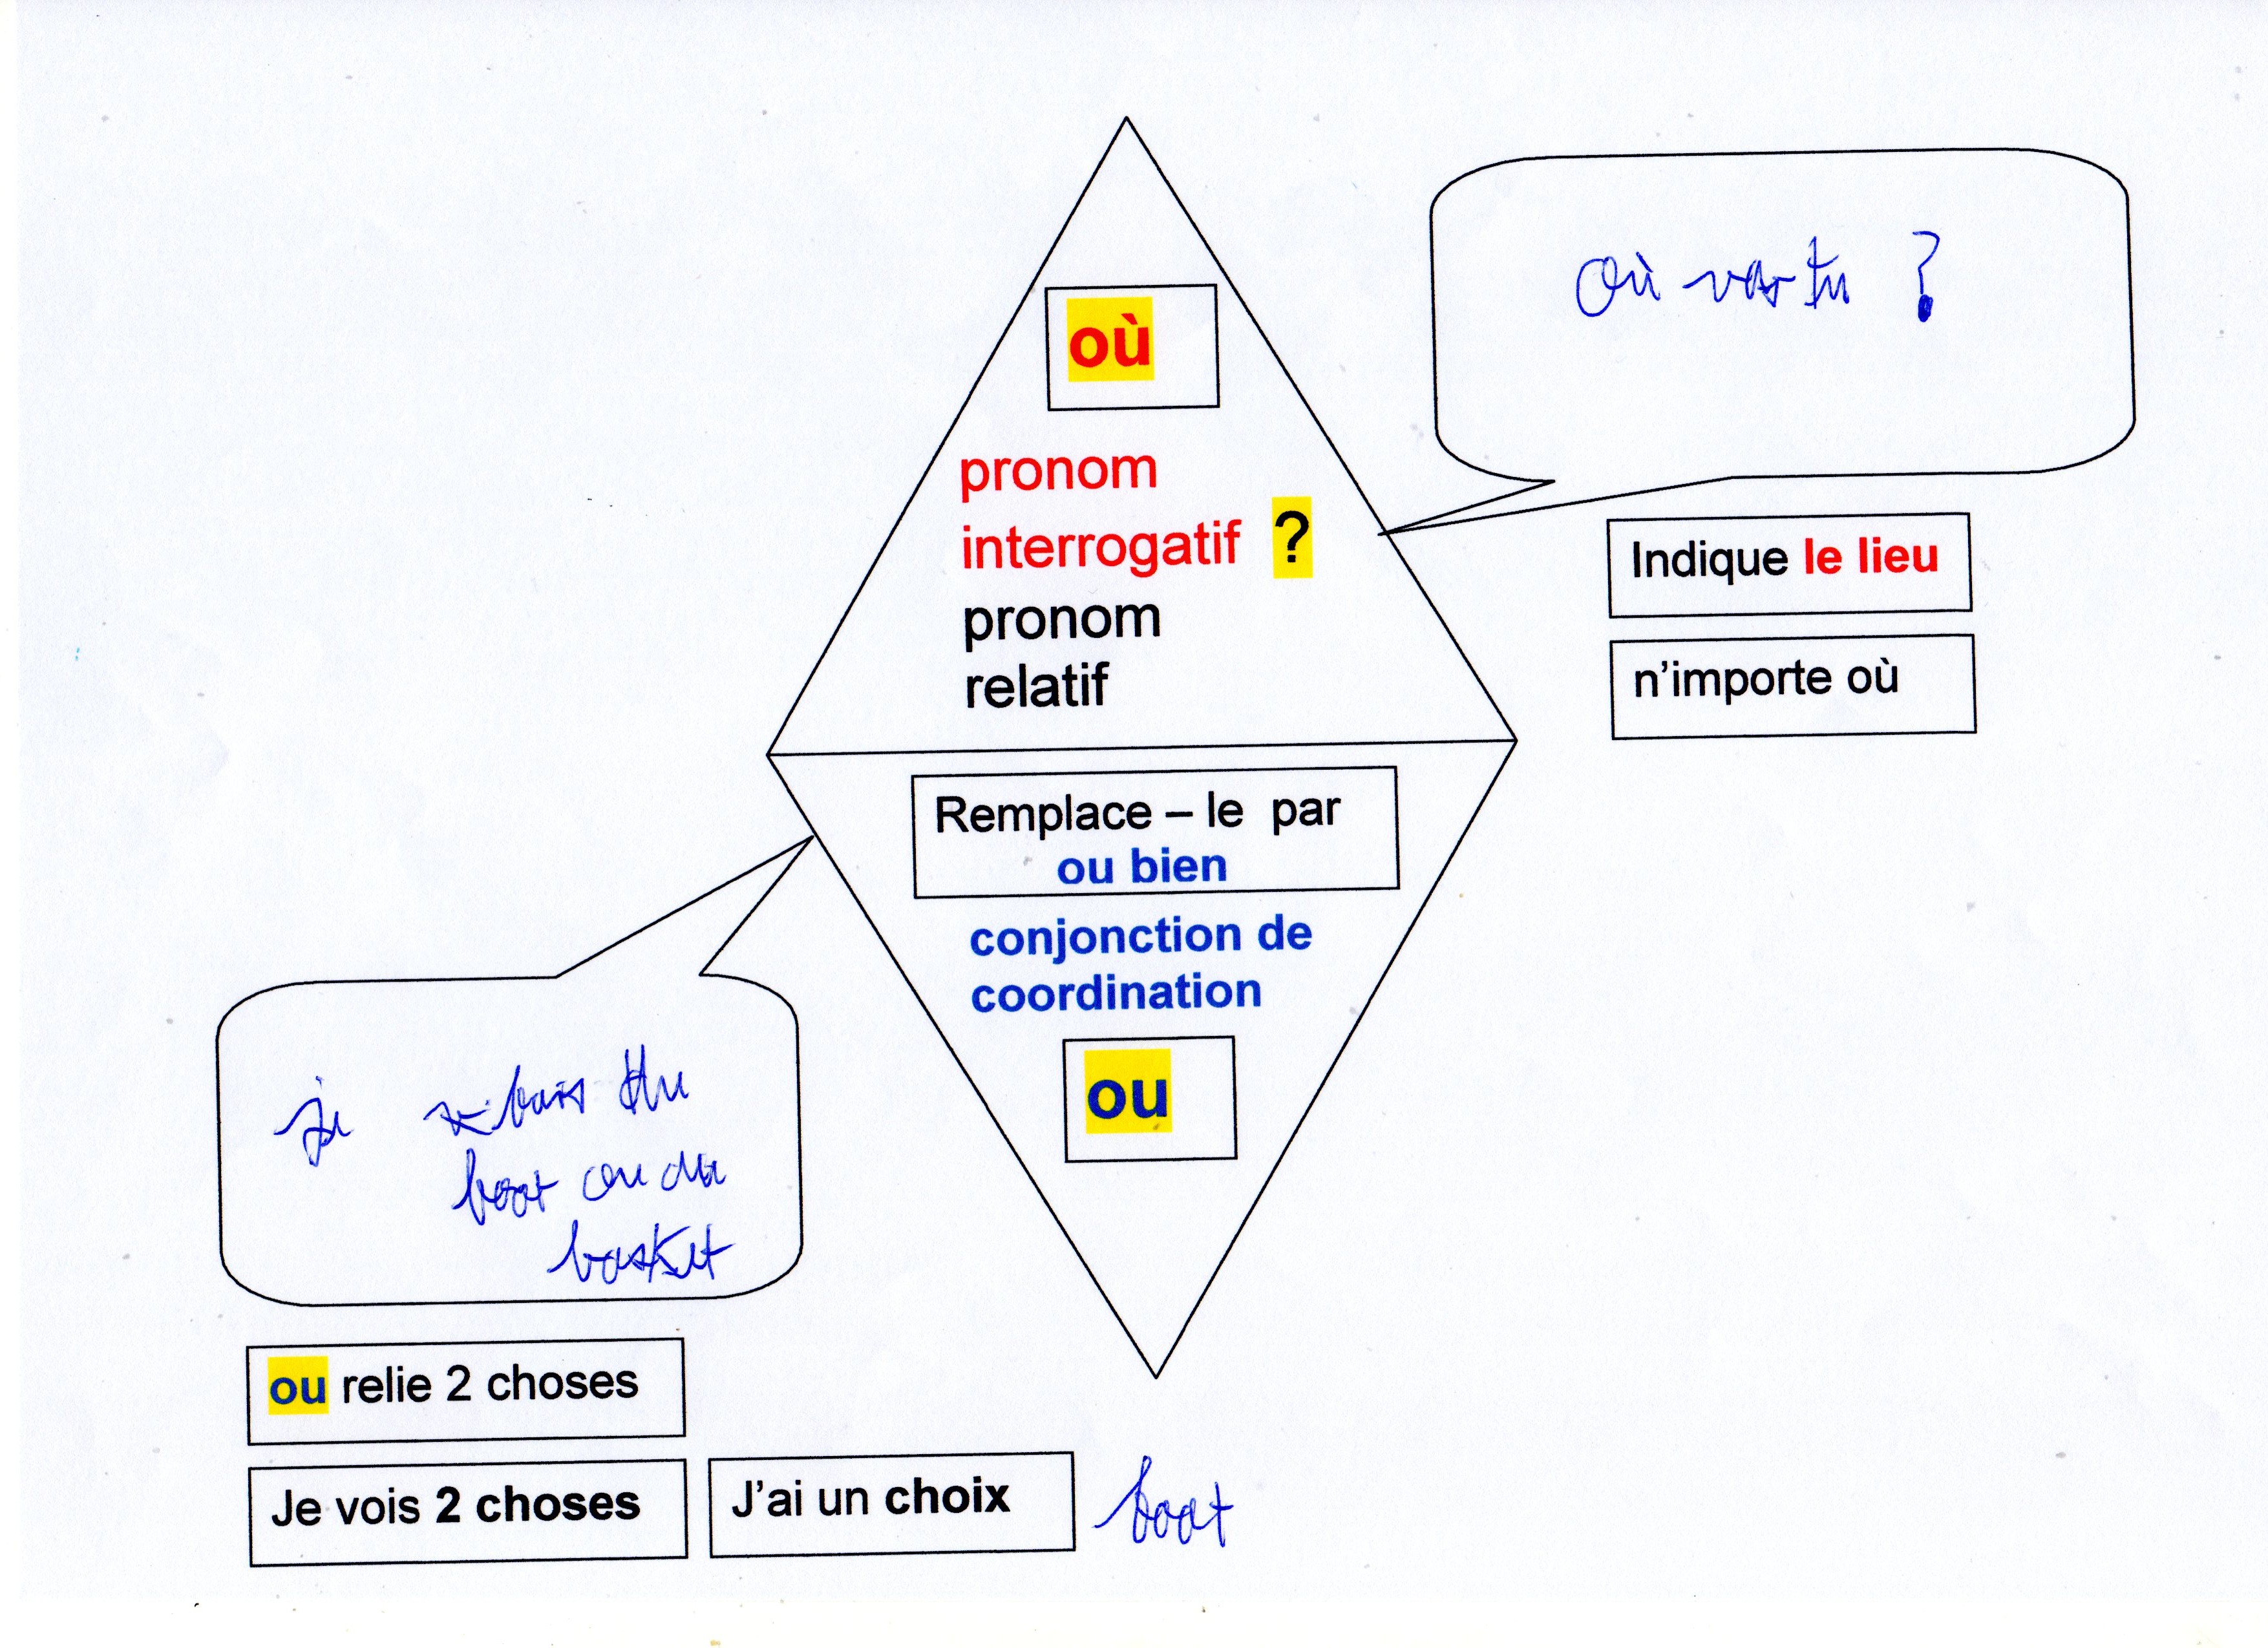 où
pronom
interrogatif ?
pronom
relatif
Où vas tu ?
Indique le lieu
n'importe où
Remplace – le par
ou bien
conjonction de
coordination
ou
je fais du
foot ou du
basket
ou relie 2 choses
Je vois 2 choses
J'ai un choix
foot